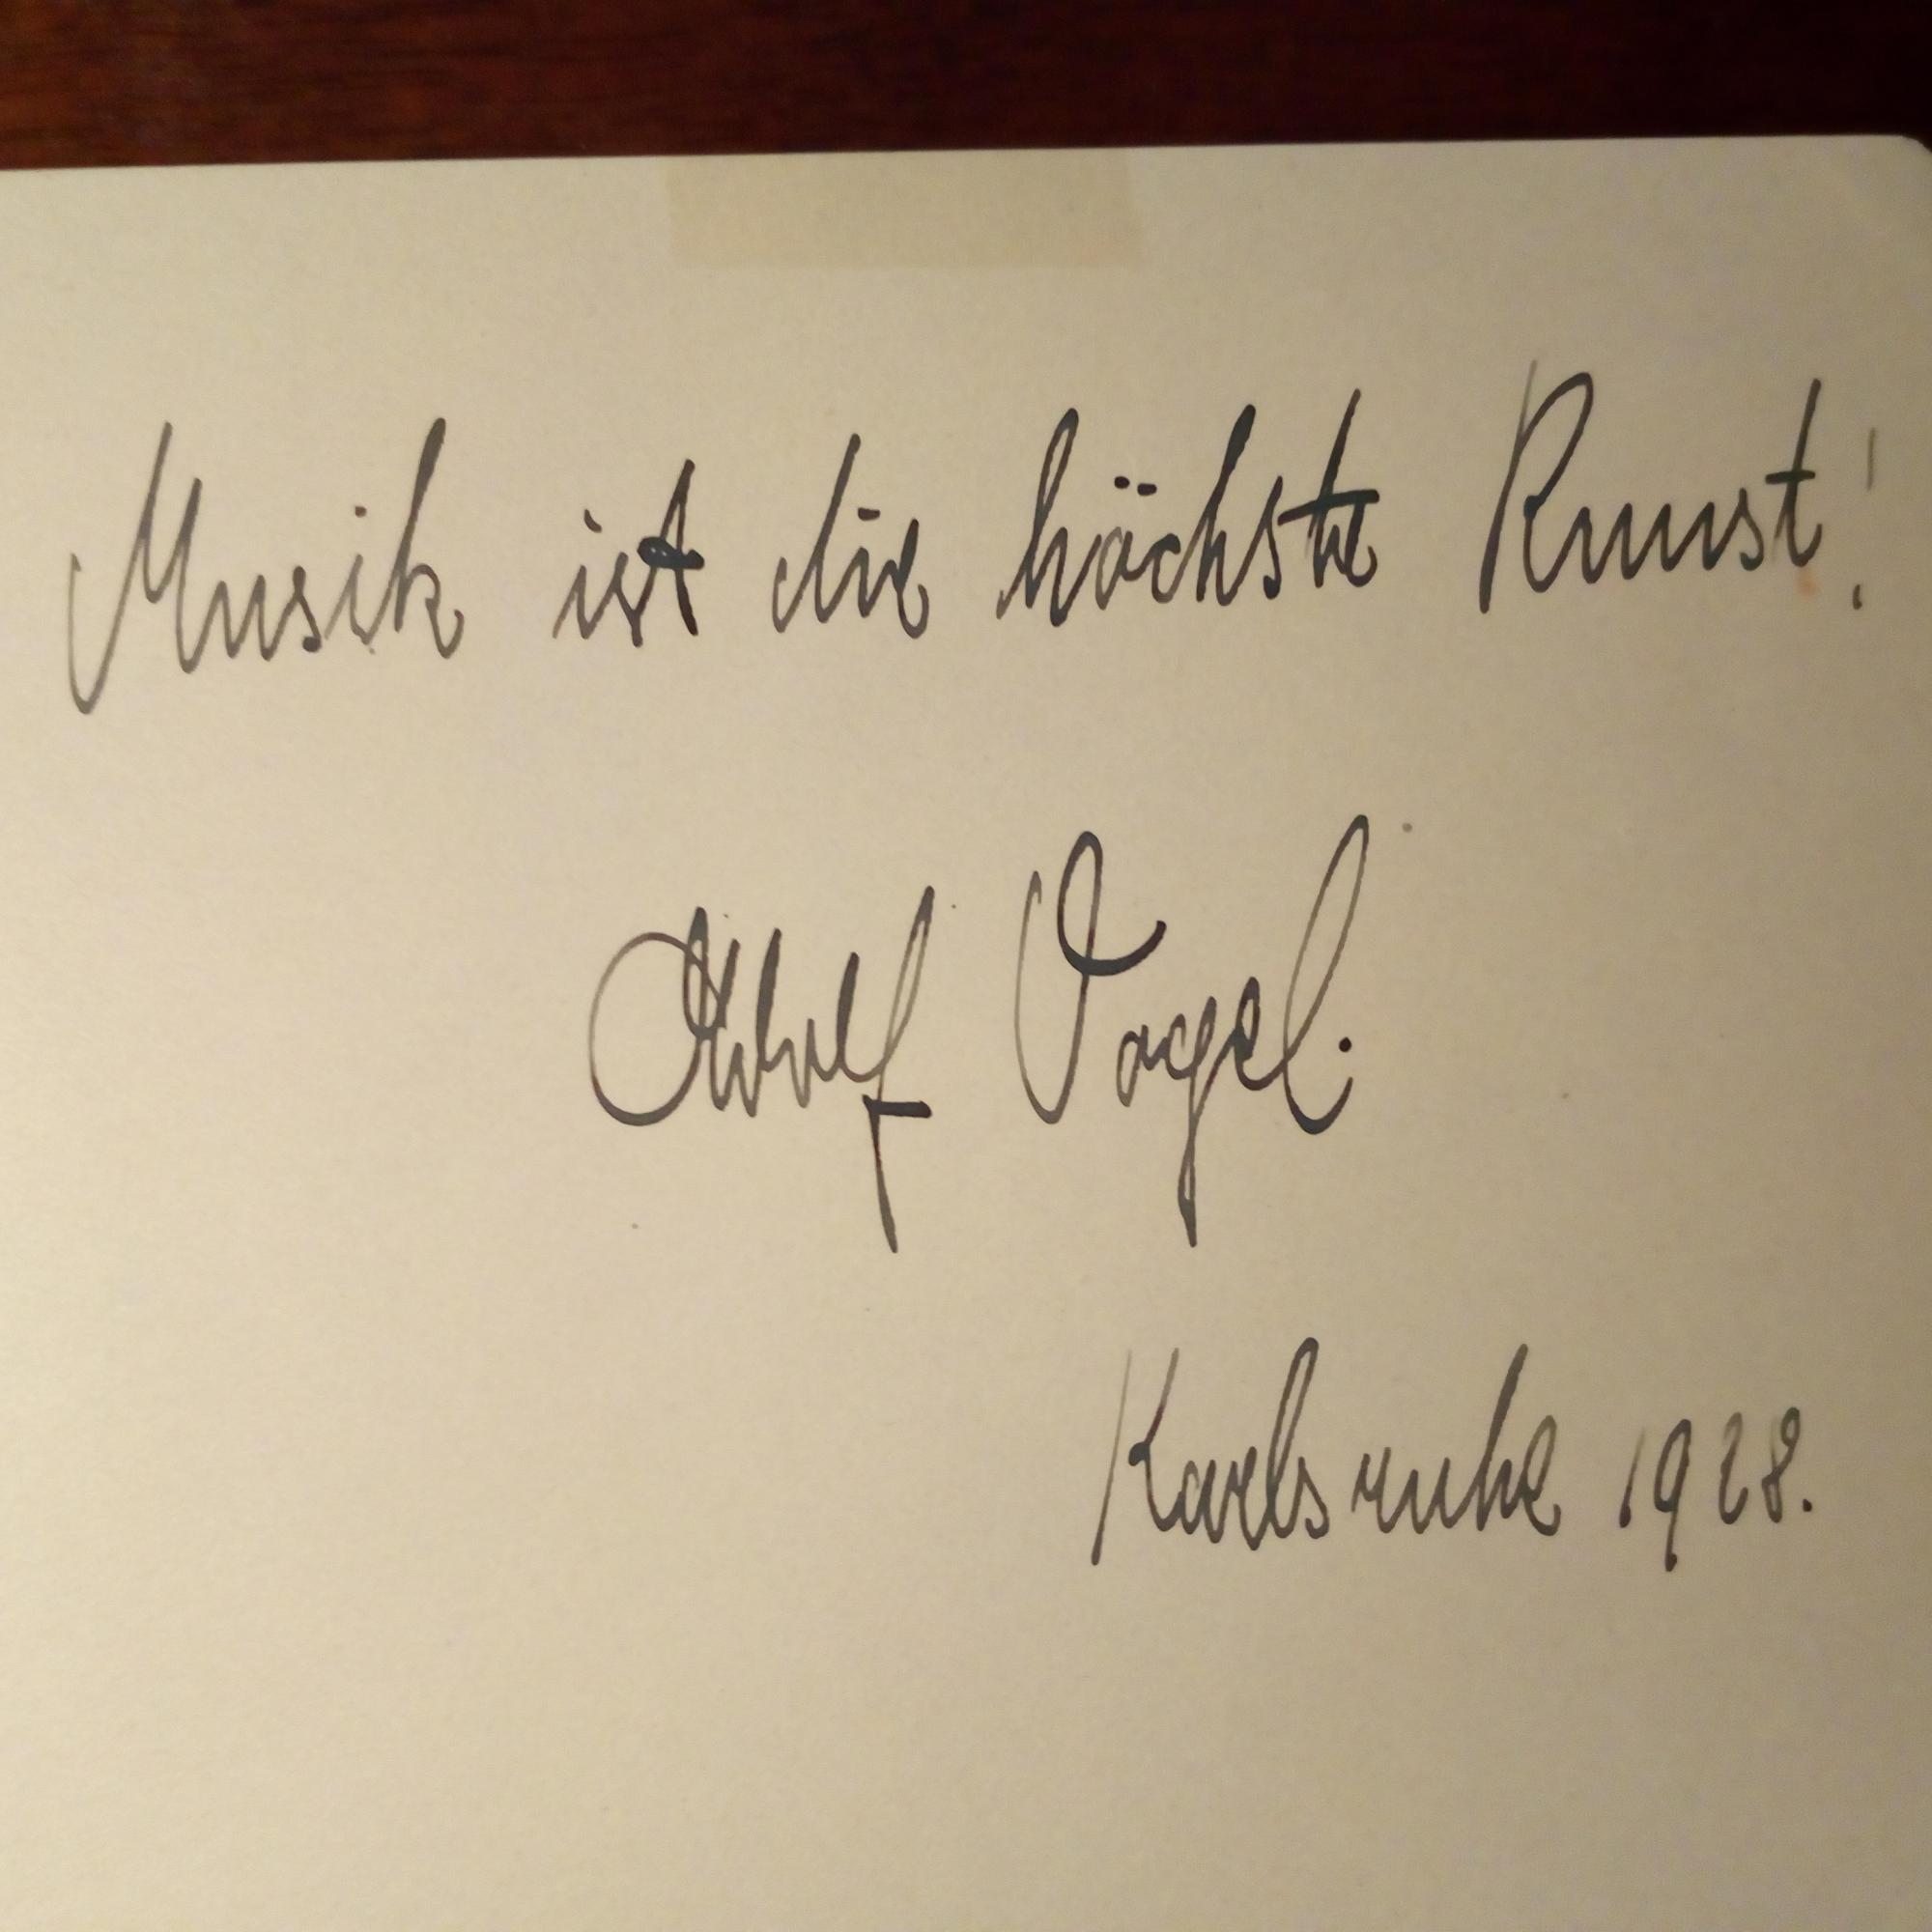 Musik ist die höchste Kunst!
Adolf Vogel.
Karlsruhe 1928.